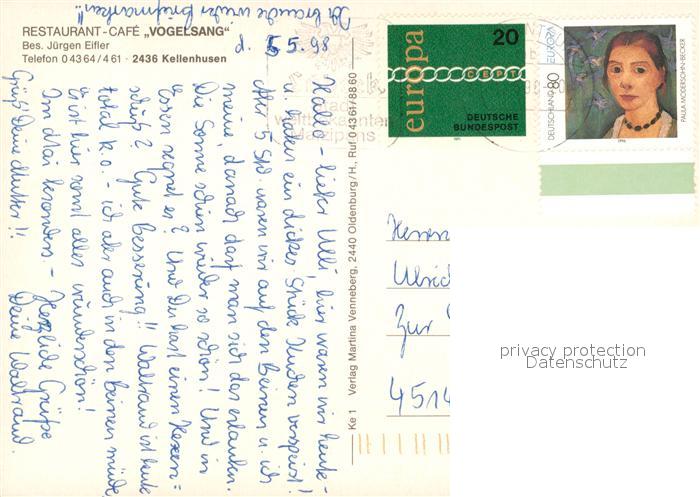 Ich brauche wieder Briefmarken!!
RESTAURANT-CAFÉ „VOGELSANG"
Bes. Jürgen Eifler
Telefon 0 43 64 / 4 61 · 2436 Kellenhusen
d. 5.5.98
Hallo - lieber Ulli, hier waren wir heute -
u. haben ein dickes Stück Kuchen verspeist!
Aber 5 Std. waren wir auf den Beinen u. ich
meine, danach darf man sich das erlauben.
Die Sonne schien wieder so schön! Und in
Essen regnet es? Und Du hast einen Hexen=
schuß? Gute Besserung!! Waltraud ist heute
total k.o. - ich aber auch in den Beinen müde,
ist hier sonst alles wunderschön!
Im Mai besonders. - Herzliche Grüße
Gruß Deine Mutter!! Deine Waltraud.
Ke 1 Verlag Martina Venneberg, 2440 Oldenburg/H., Ruf 0 43 61 / 88 60
europa
20
CEPT
DEUTSCHE
BUNDESPOST
1971
DEUTSCHLAND 80 EUROPA
PAULA MODERSOHN-BECKER
1996
Stadt
weltbekannten
Marzipans
Herrn
Ulric
Zur
4514
privacy protection
Datenschutz